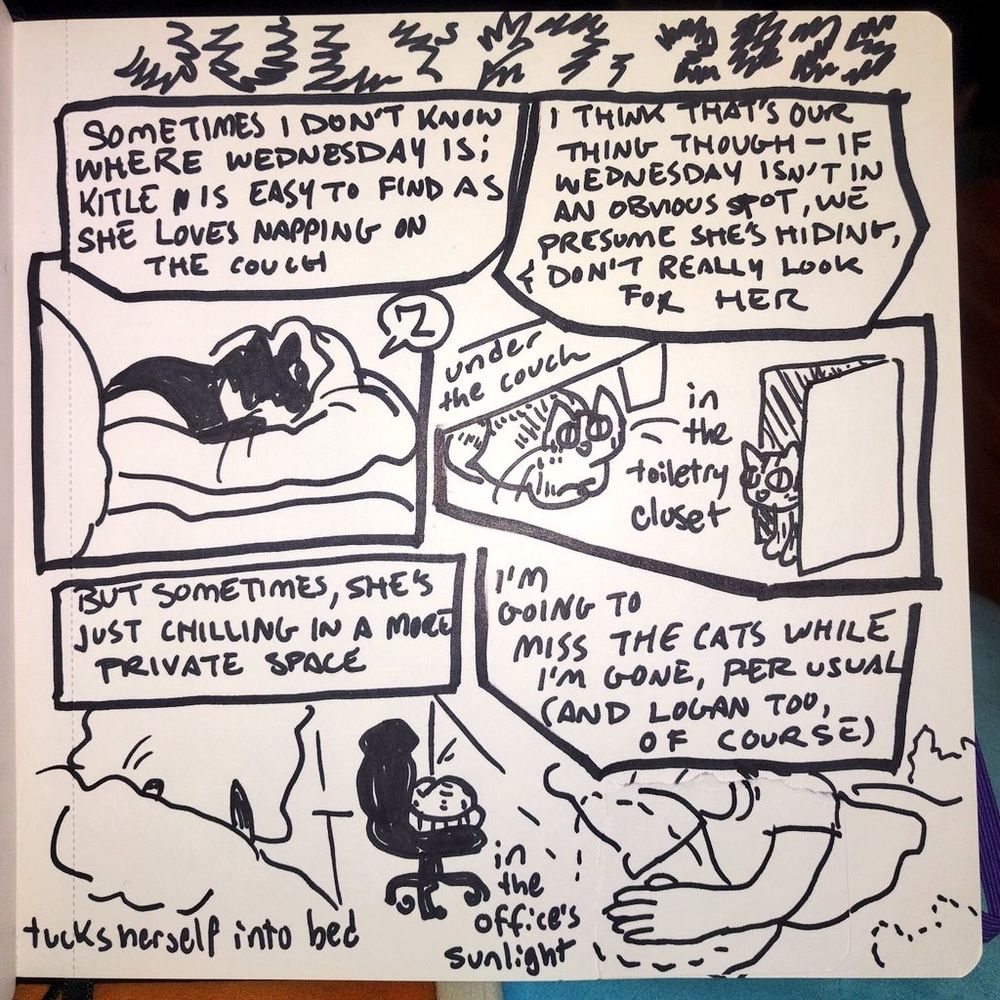 JULY 27, 2025
SOMETIMES I DON'T KNOW
WHERE WEDNESDAY IS;
KITLEN IS EASY TO FIND AS
SHE LOVES NAPPING ON
THE COUCH
I THINK THAT'S OUR
THING THOUGH – IF
WEDNESDAY ISN'T IN
AN OBVIOUS SPOT, WE
PRESUME SHE'S HIDING,
& DON'T REALLY LOOK
FOR HER
Z
under
the couch
in
the
toiletry
closet
BUT SOMETIMES, SHE'S
JUST CHILLING IN A MORE
PRIVATE SPACE
I'M
GOING TO
MISS THE CATS WHILE
I'M GONE, PER USUAL
(AND LOGAN TOO,
OF COURSE)
tucks herself into bed
in
the
office's
sunlight